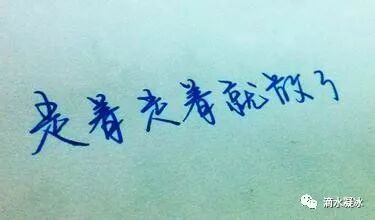 走着走着就散了
滴水凝冰